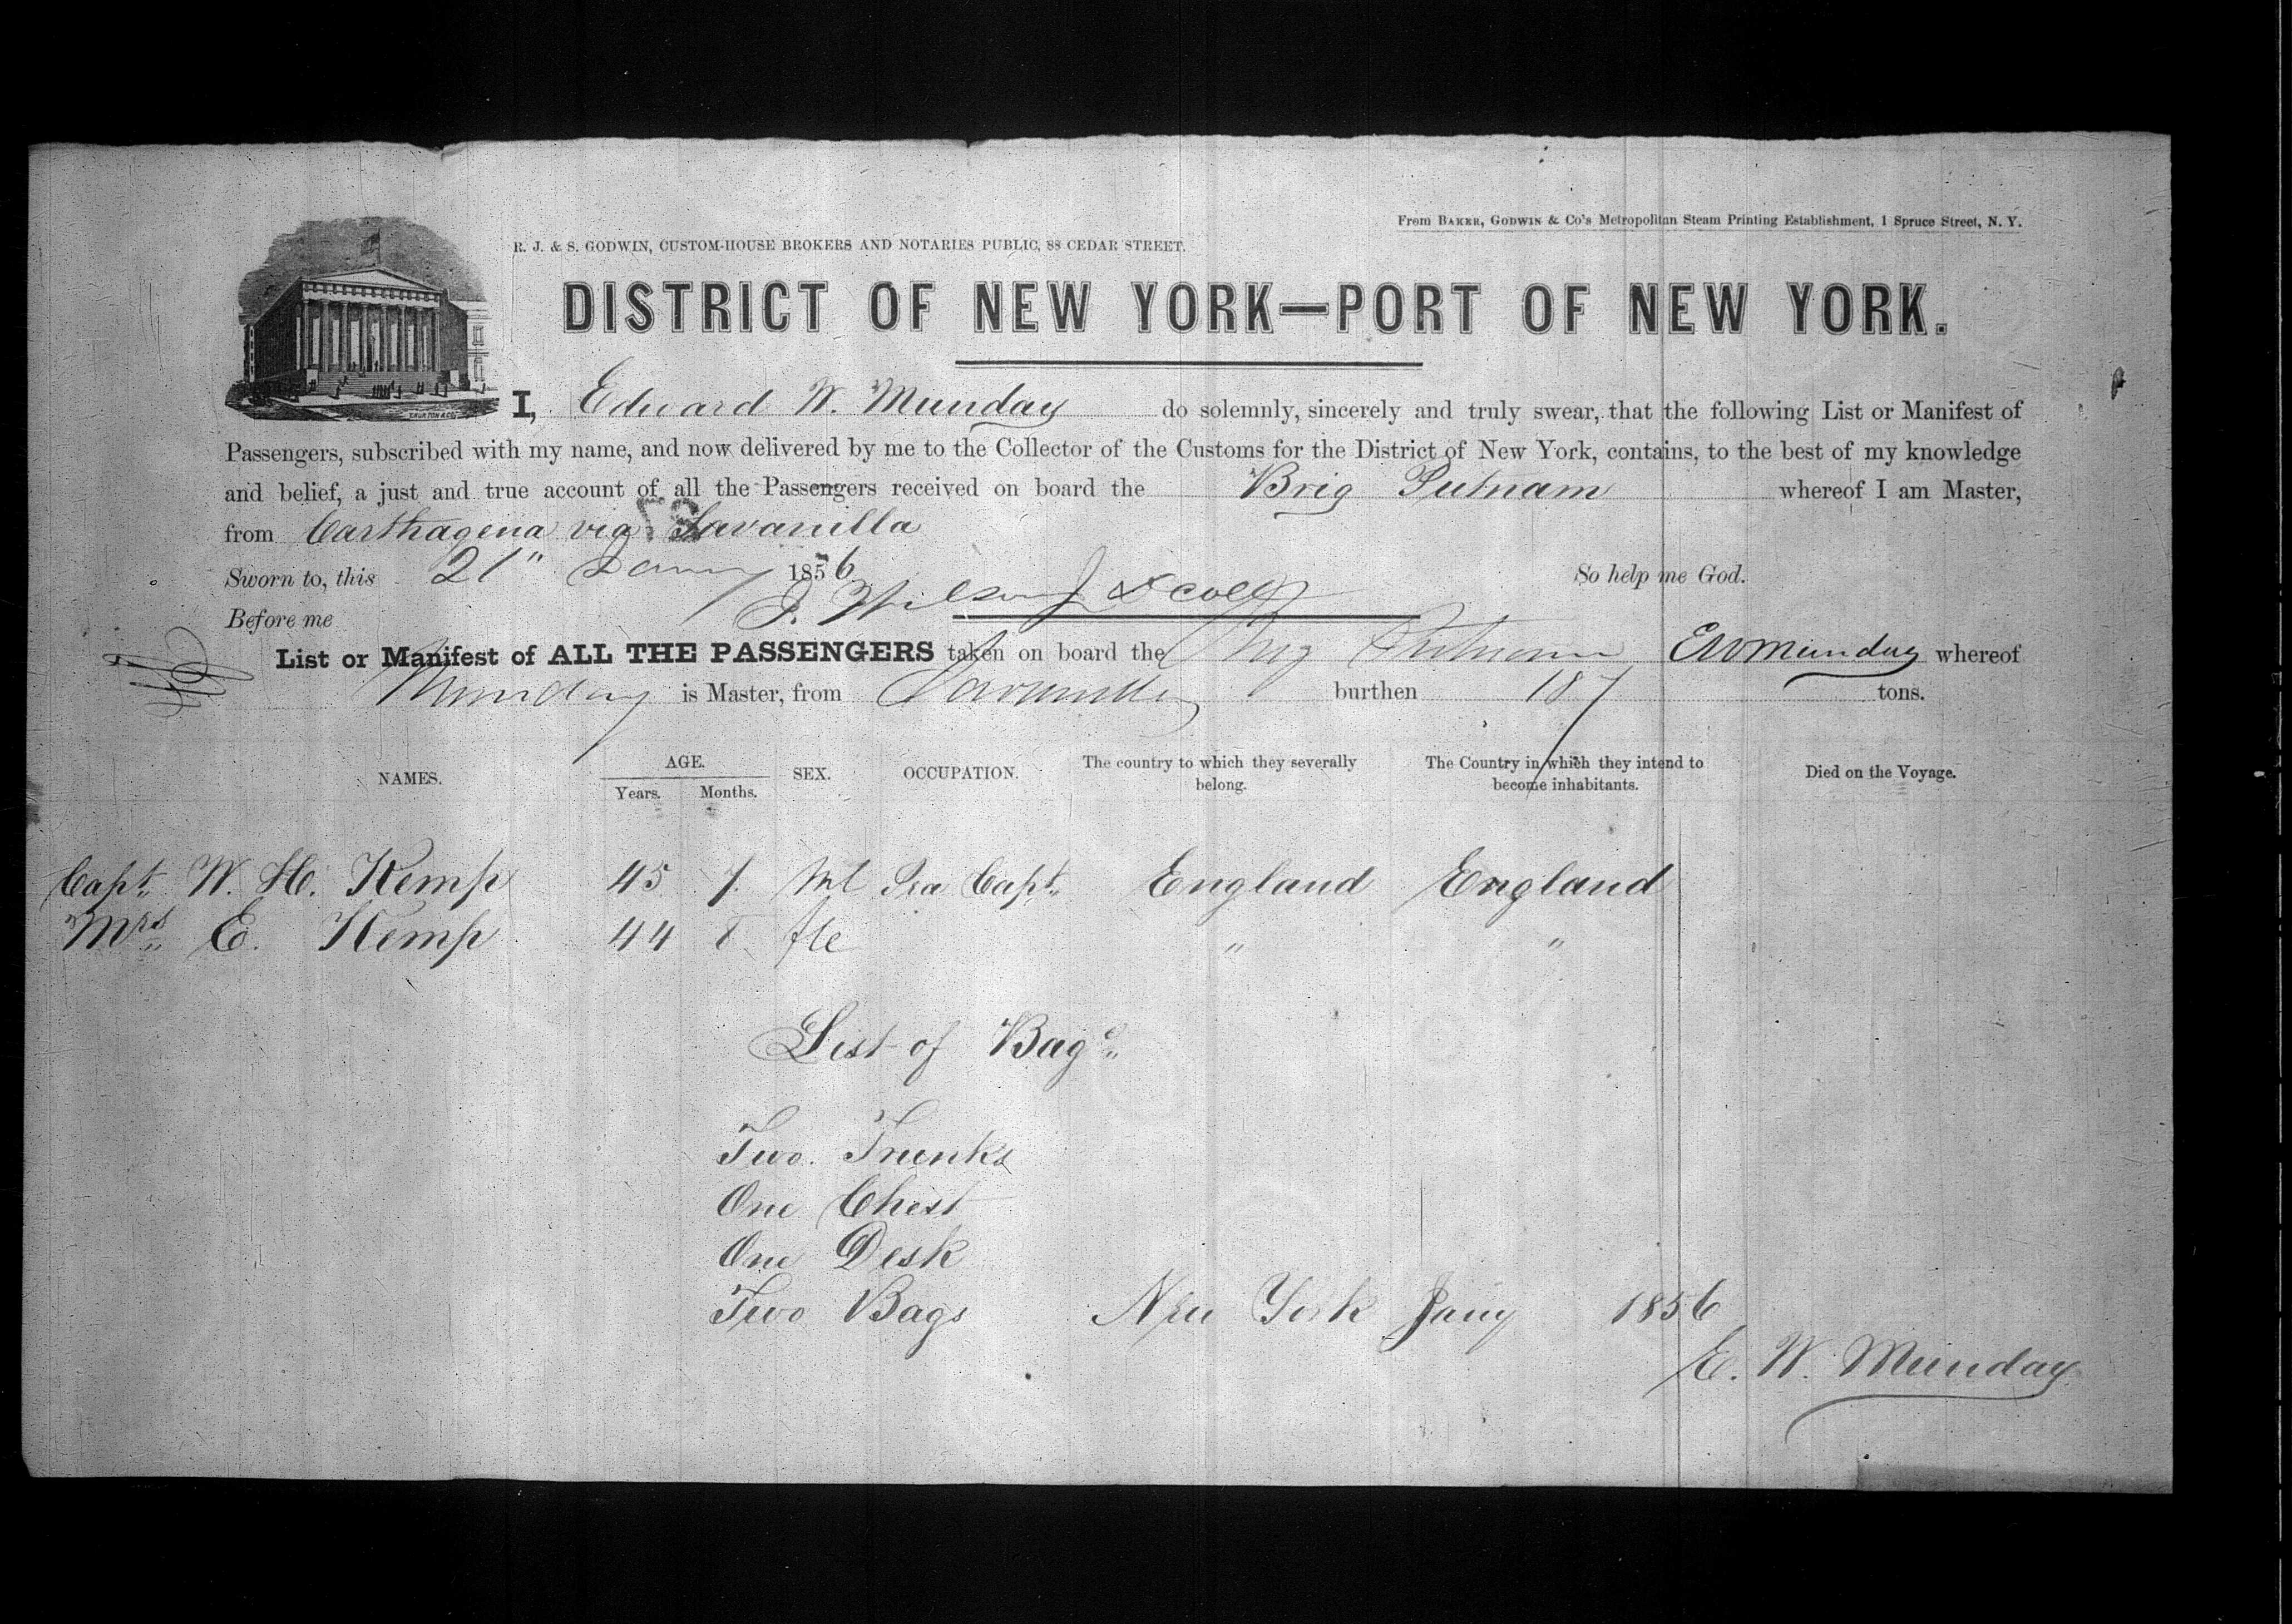 From BAKER, GODWIN & Co's Metropolitan Steam Printing Establishment, 1 Spruce Street, N. Y.
R. J. & S. GODWIN, CUSTOM-HOUSE BROKERS AND NOTARIES PUBLIC, 88 CEDAR STREET.
DISTRICT OF NEW YORK—PORT OF NEW YORK.
I, Edward W. Munday do solemnly, sincerely and truly swear, that the following List or Manifest of
Passengers, subscribed with my name, and now delivered by me to the Collector of the Customs for the District of New York, contains, to the best of my knowledge
and belief, a just and true account of all the Passengers received on board the Brig Putnam whereof I am Master,
from Carthagena via Savanilla
Sworn to, this 21" 1856 So help me God.
Before me J. Wilson
List or Manifest of ALL THE PASSENGERS taken on board the Brig Putnam E W Munday whereof
Munday is Master, from Savanilla burthen 187 tons.
NAMES. AGE. SEX. OCCUPATION. The country to which they severally belong. The Country in which they intend to become inhabitants. Died on the Voyage.
Years. Months.
Capt. W. H. Kemp 45 7 Ml Sea Capt. England England
Mrs E. Kemp 44 8 fle " "
List of Bage
Two Trunks
One Chest
One Desk
Two Bags New York Jany 1856
E. W. Munday